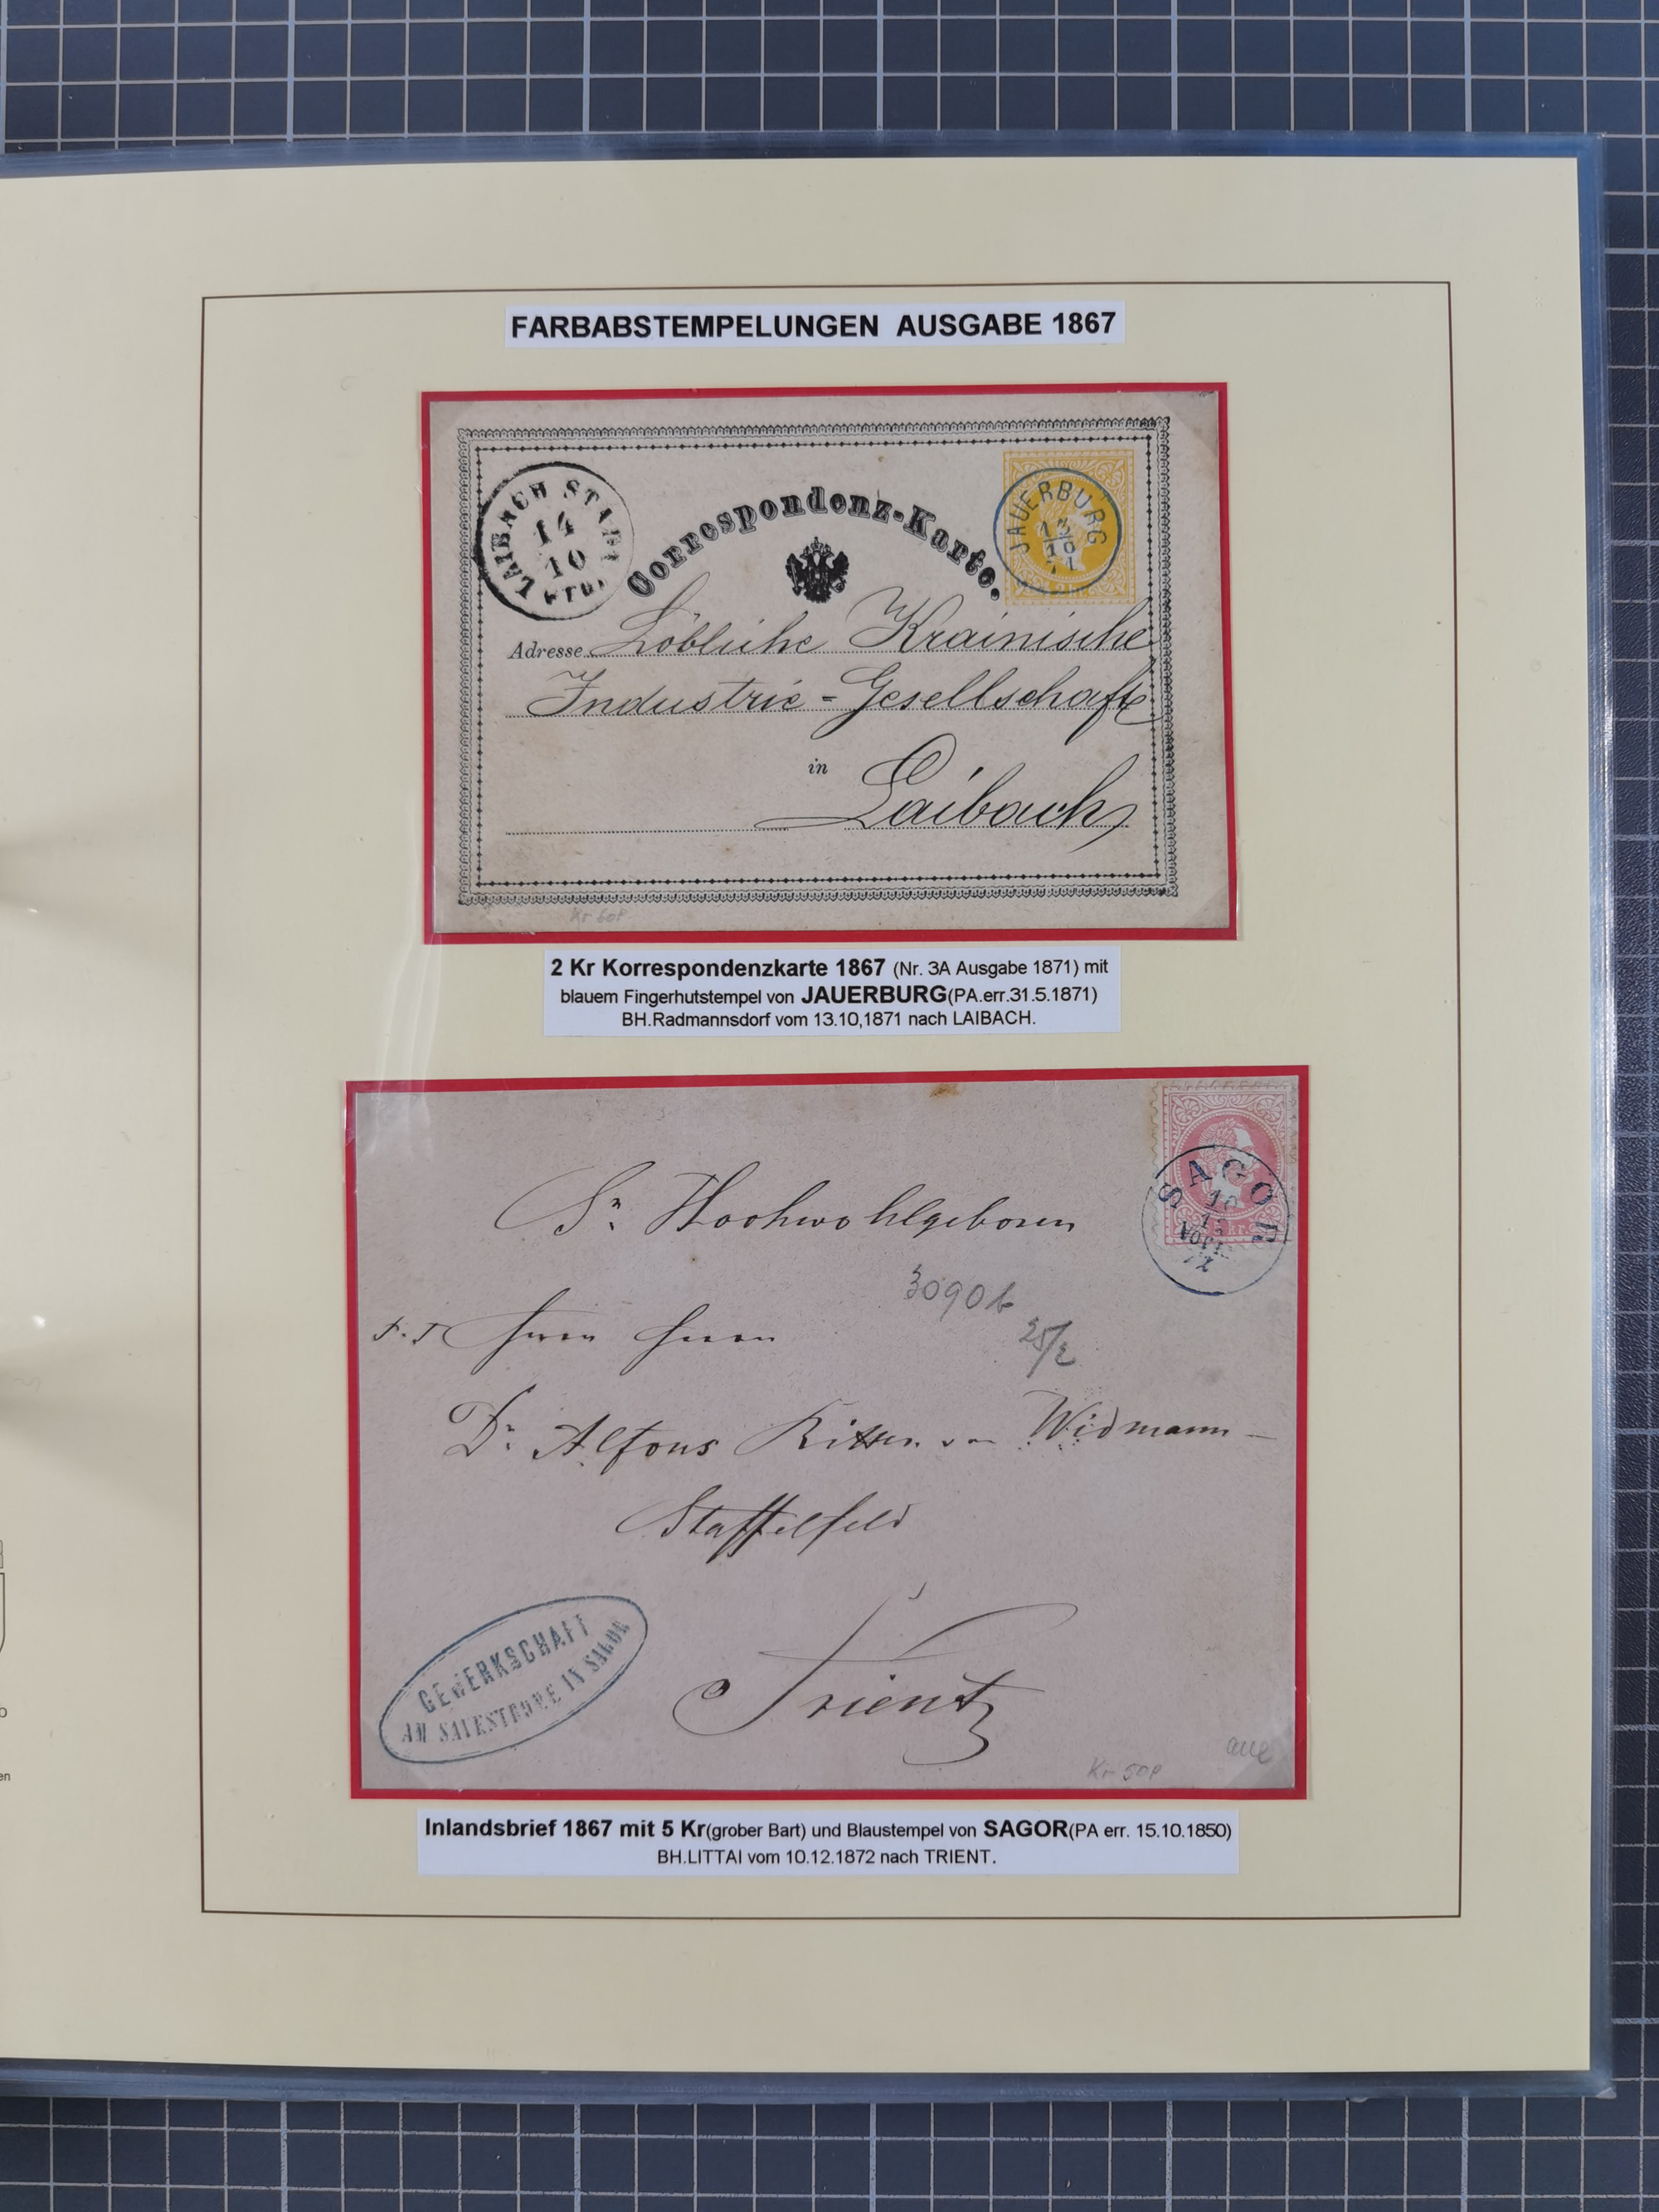 FARBABSTEMPELUNGEN AUSGABE 1867
LAIBACH STADT
14
10
Früh
Correspondenz-Karte.
JAUERBURG
13
10
71
Adresse Löbliche Krainische
Industrie-Gesellschaft
in
Laibach
Kr 60P
2 Kr Korrespondenzkarte 1867 (Nr. 3A Ausgabe 1871) mit
blauem Fingerhutstempel von JAUERBURG(PA.err.31.5.1871)
BH.Radmannsdorf vom 13.10,1871 nach LAIBACH.
SAGOR
10
12
72
Sr. Hochwohlgeboren
3090b
25/2
Herrn Herrn
Dr. Alfons Ritter von Widmann-
Staffelfeld
Trient
GEWERKSCHAFT
AM SAVESTROME IN SAGOR
Kr 50P
Inlandsbrief 1867 mit 5 Kr(grober Bart) und Blaustempel von SAGOR(PA err. 15.10.1850)
BH.LITTAI vom 10.12.1872 nach TRIENT.
en